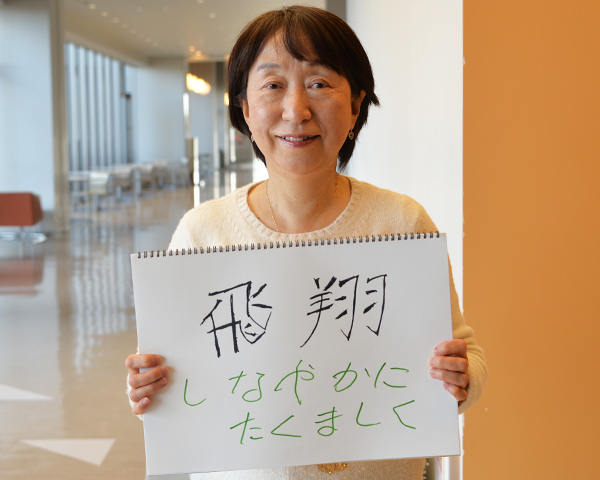 飛翔
しなやかに
たくましく